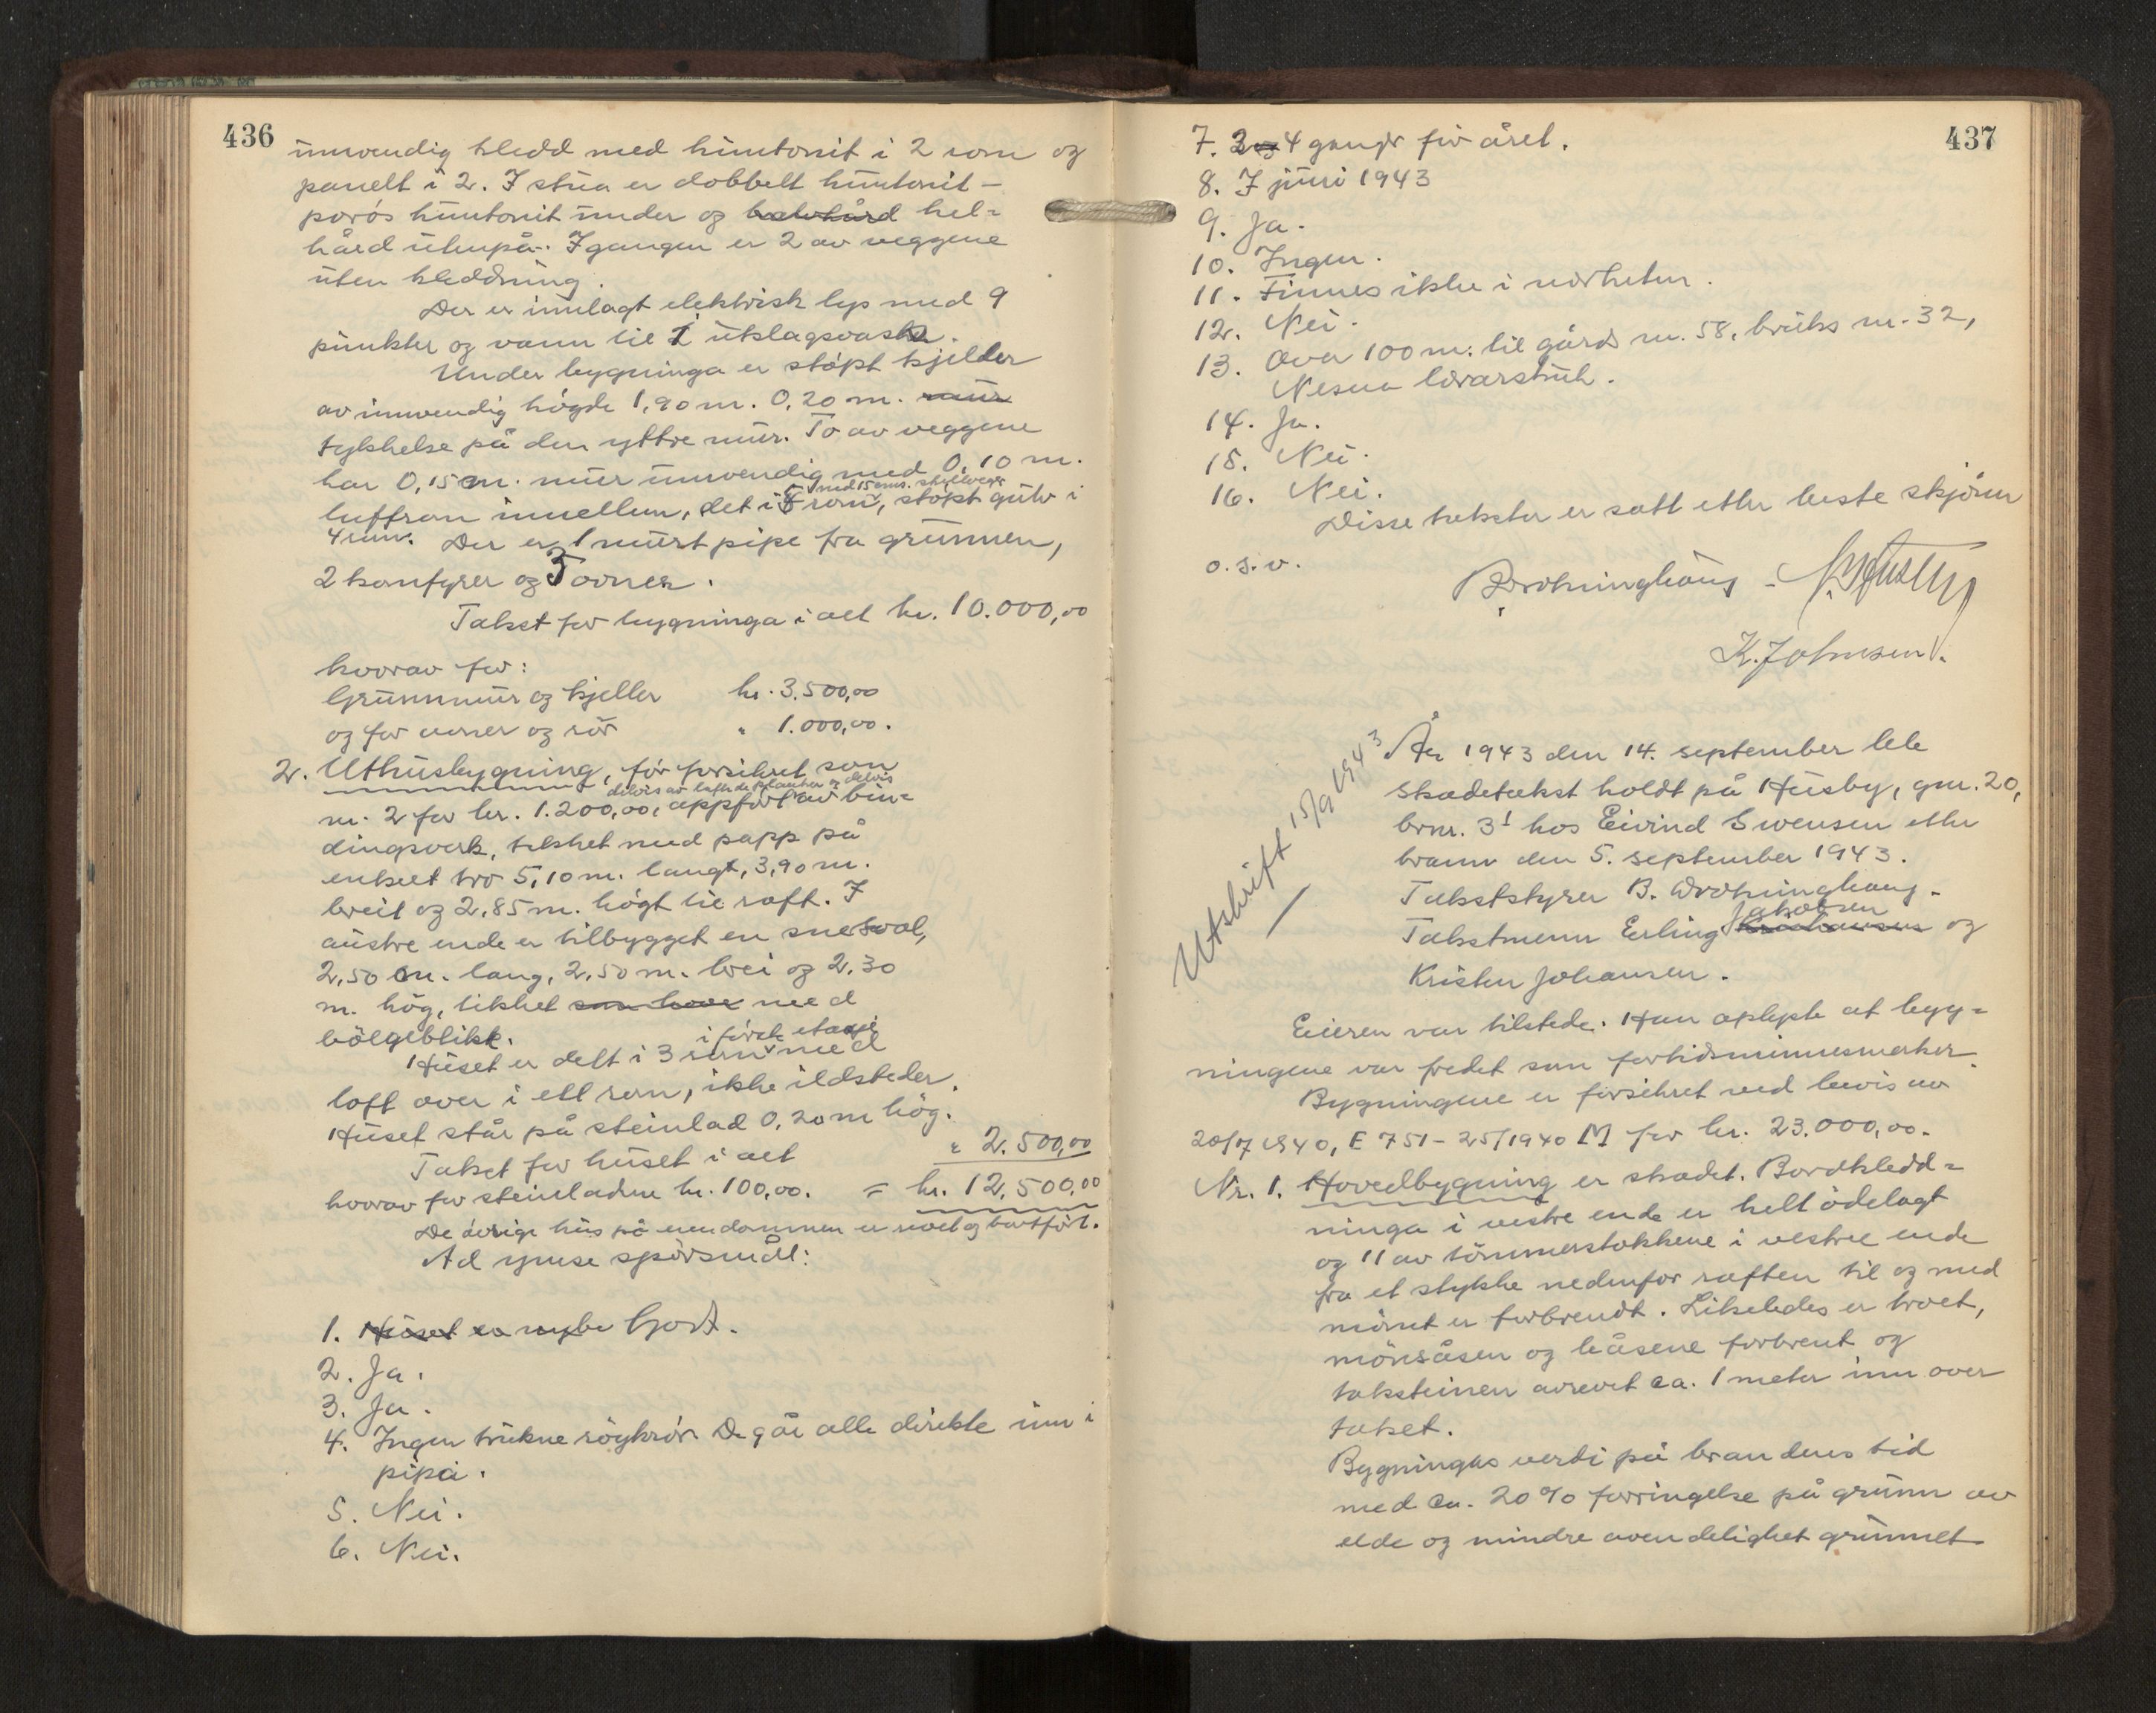 436
innvendig kledd med huntonit i 2 rom og
panelt i 2. I stua er dobbelt huntonit -
porøs huntonit under og halvhård hel=
hård utenpå. I gangen er 2 av veggene
uten kleddning.
Der er innlagt elektrisk lys med 9
punkter og vann til 1 utslagsvask.
Under bygninga er støpt kjelder
av innvendig høgde 1,90 m. 0,20 m. mur
tykkelse på den yttre mur. To av veggene
har 0,15 m. mur innvendig med 0,10 m.
med 15 cm. skillevegg
luftrom imellem, det i 5 rom, støpt gulv i
4 rum. Der er 1 murt pipe fra grunnen,
2 komfyrer og 3 ovner.
Takst for bygninga i alt kr. 10.000,00
hvorav for:
Grunnmur og kjeller kr. 3.500,00
og for ovner og rør " 1.000,00.
2. Uthusbygning, før forsikret som
delvis av laftede planker og delvis
nr. 2 for kr. 1.200,00, oppført av bin=
dingsverk, tekket med papp på
enkelt tro 5,10 m. langt, 3,90 m.
breit og 2,85 m. høgt til raft. I
austre ende er tilbygget en sneskval,
2,50 m. lang, 2,50 m. brei og 2,30
m. høg, tekket som huset med
bølgeblikk.
i første etasje
Huset er delt i 3 rom med
loft over i ett rom, ikke ildsteder.
Huset står på steinlad 0,20 m høg.
Takst for huset i alt " 2.500,00
hvorav for steinladene kr. 100,00. = kr. 12.500,00
De øvrige hus på eiendommen er revet og bortført.
Ad ymse spørsmål:
1. Huset er nybe Godt.
2. Ja.
3. Ja.
4. Ingen trukne røykrør. De går alle direkte inn i
pipa.
5. Nei.
6. Nei.
437
7. 2 og 4 ganger for året.
8. I juni 1943
9. Ja.
10. Ingen.
11. Finnes ikke i nærheten.
12. Nei.
13. Over 100 m. til gårds nr. 58, bruks nr. 32,
Nesna lærarskule.
14. Ja.
15. Nei.
16. Nei.
Disse takster er satt etter beste skjønn
o.s.v.
B. Drotninghaug
K. Johnsen.
Utskrift 15/9 1943
År 1943 den 14. september ble
skadetakst holdt på Husby, gnr. 20,
brnr. 3¹ hos Eivind Svensen etter
brann den 5. september 1943.
Takststyrer B. Drotninghaug.
Jakobsen
Takstmenn Erling og
Kristen Johansen.
Eieren var tilstede. Han oplyste at byg=
ningene var fredet som fortidsminnesmerker.
Bygningene er forsikret ved bevis av
20/7 1940, E 751 - 25/1940 M for kr. 23.000,00.
Nr. 1. Hovedbygning er skadet. Bordkledd=
ninga i vestre ende er helt ødelagt
og 11 av tømmerstokkene i vestre ende
fra et stykke nedenfor raften til og med
mønet er forbrendt. Likeledes er troet,
mønsåsen og leåsene forbrent og
taksteinen avrevet ca. 1 meter inn over
taket.
Bygningens verdi på brandens tid
med ca. 20% forringelse på grunn av
elde og mindre avendelighet grunnet